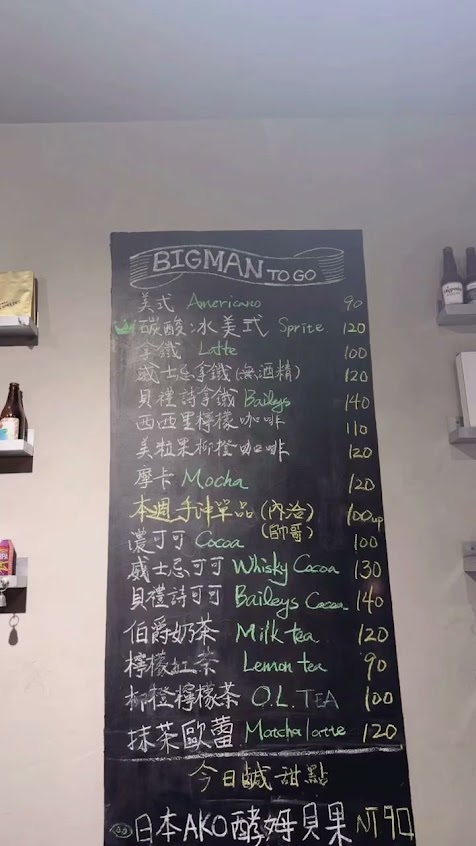 BIGMAN TO GO
美式 Americano 90
碳酸冰美式 Sprite 120
拿鐵 Latte 100
威士忌拿鐵(無酒精) 120
貝禮詩拿鐵 Baileys 140
西西里檸檬咖啡 110
美粒果柳橙咖啡 120
摩卡 Mocha 120
本週手沖單品(內洽) 100up
(帥哥)
濃可可 Cocoa 100
威士忌可可 Whisky Cocoa 130
貝禮詩可可 Baileys Cocoa 140
伯爵奶茶 Milk tea 120
檸檬紅茶 Lemon tea 90
柳橙檸檬茶 O.L. TEA 100
抹茶歐蕾 Matcha latte 120
今日鹹甜點
日本AKO酵姆貝果 NT 90